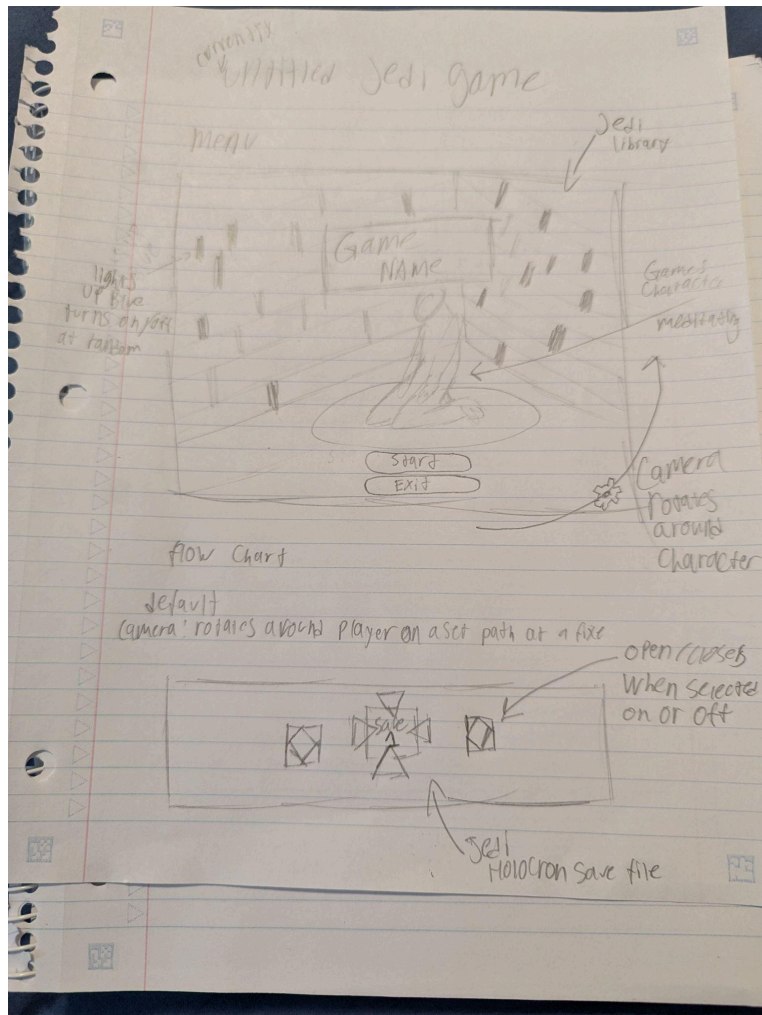 currently
untitled Jedi game
menu
Jedi
library
Game
NAME
lights
up Blue
turns on/off
at random
Games
Character
meditating
Start
Exit
Camera
rotates
around
Character
flow chart
default
Camera: rotates around player on a set path at a fixe
open/closes
when selected
on or off
save
1
Jedi
Holocron save file